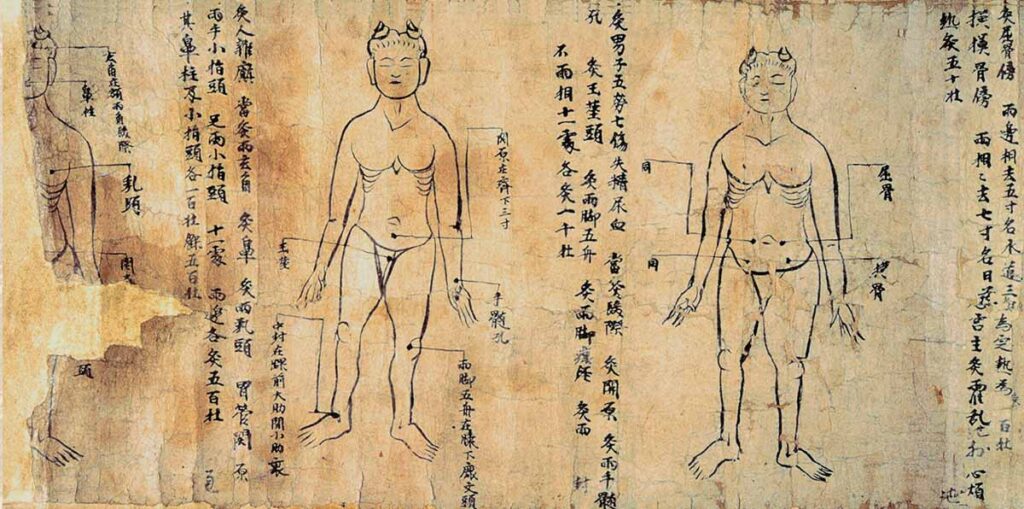 灸屈骨傍 兩邊相去五寸名水道三 為定熱為 百壯
橫骨傍 兩相々去七寸名曰 主灸霍亂 心煩
熱灸五十壯
屈骨
橫骨
同
同
灸男子五勞七傷失精尿血 當灸 際 灸関原 灸兩手髓
孔 灸玉莖頭 灸兩脚五舟 灸兩脚 灸兩 封
不兩相十一處各灸一千壯
関原在齊下三寸
手髓孔
兩脚五舟在膝下 文頭
玉莖
中封在踝前大肋間小肋裏
灸人雜癩 當灸兩玄角 灸鼻 灸兩乳頭 胃管関原
兩手小指頭 足兩小指頭 十一處 兩邊各灸五百壯
其鼻柱及小指頭各一百壯餘五百壯
玄角在額兩角 際
鼻柱
乳頭
関
頭